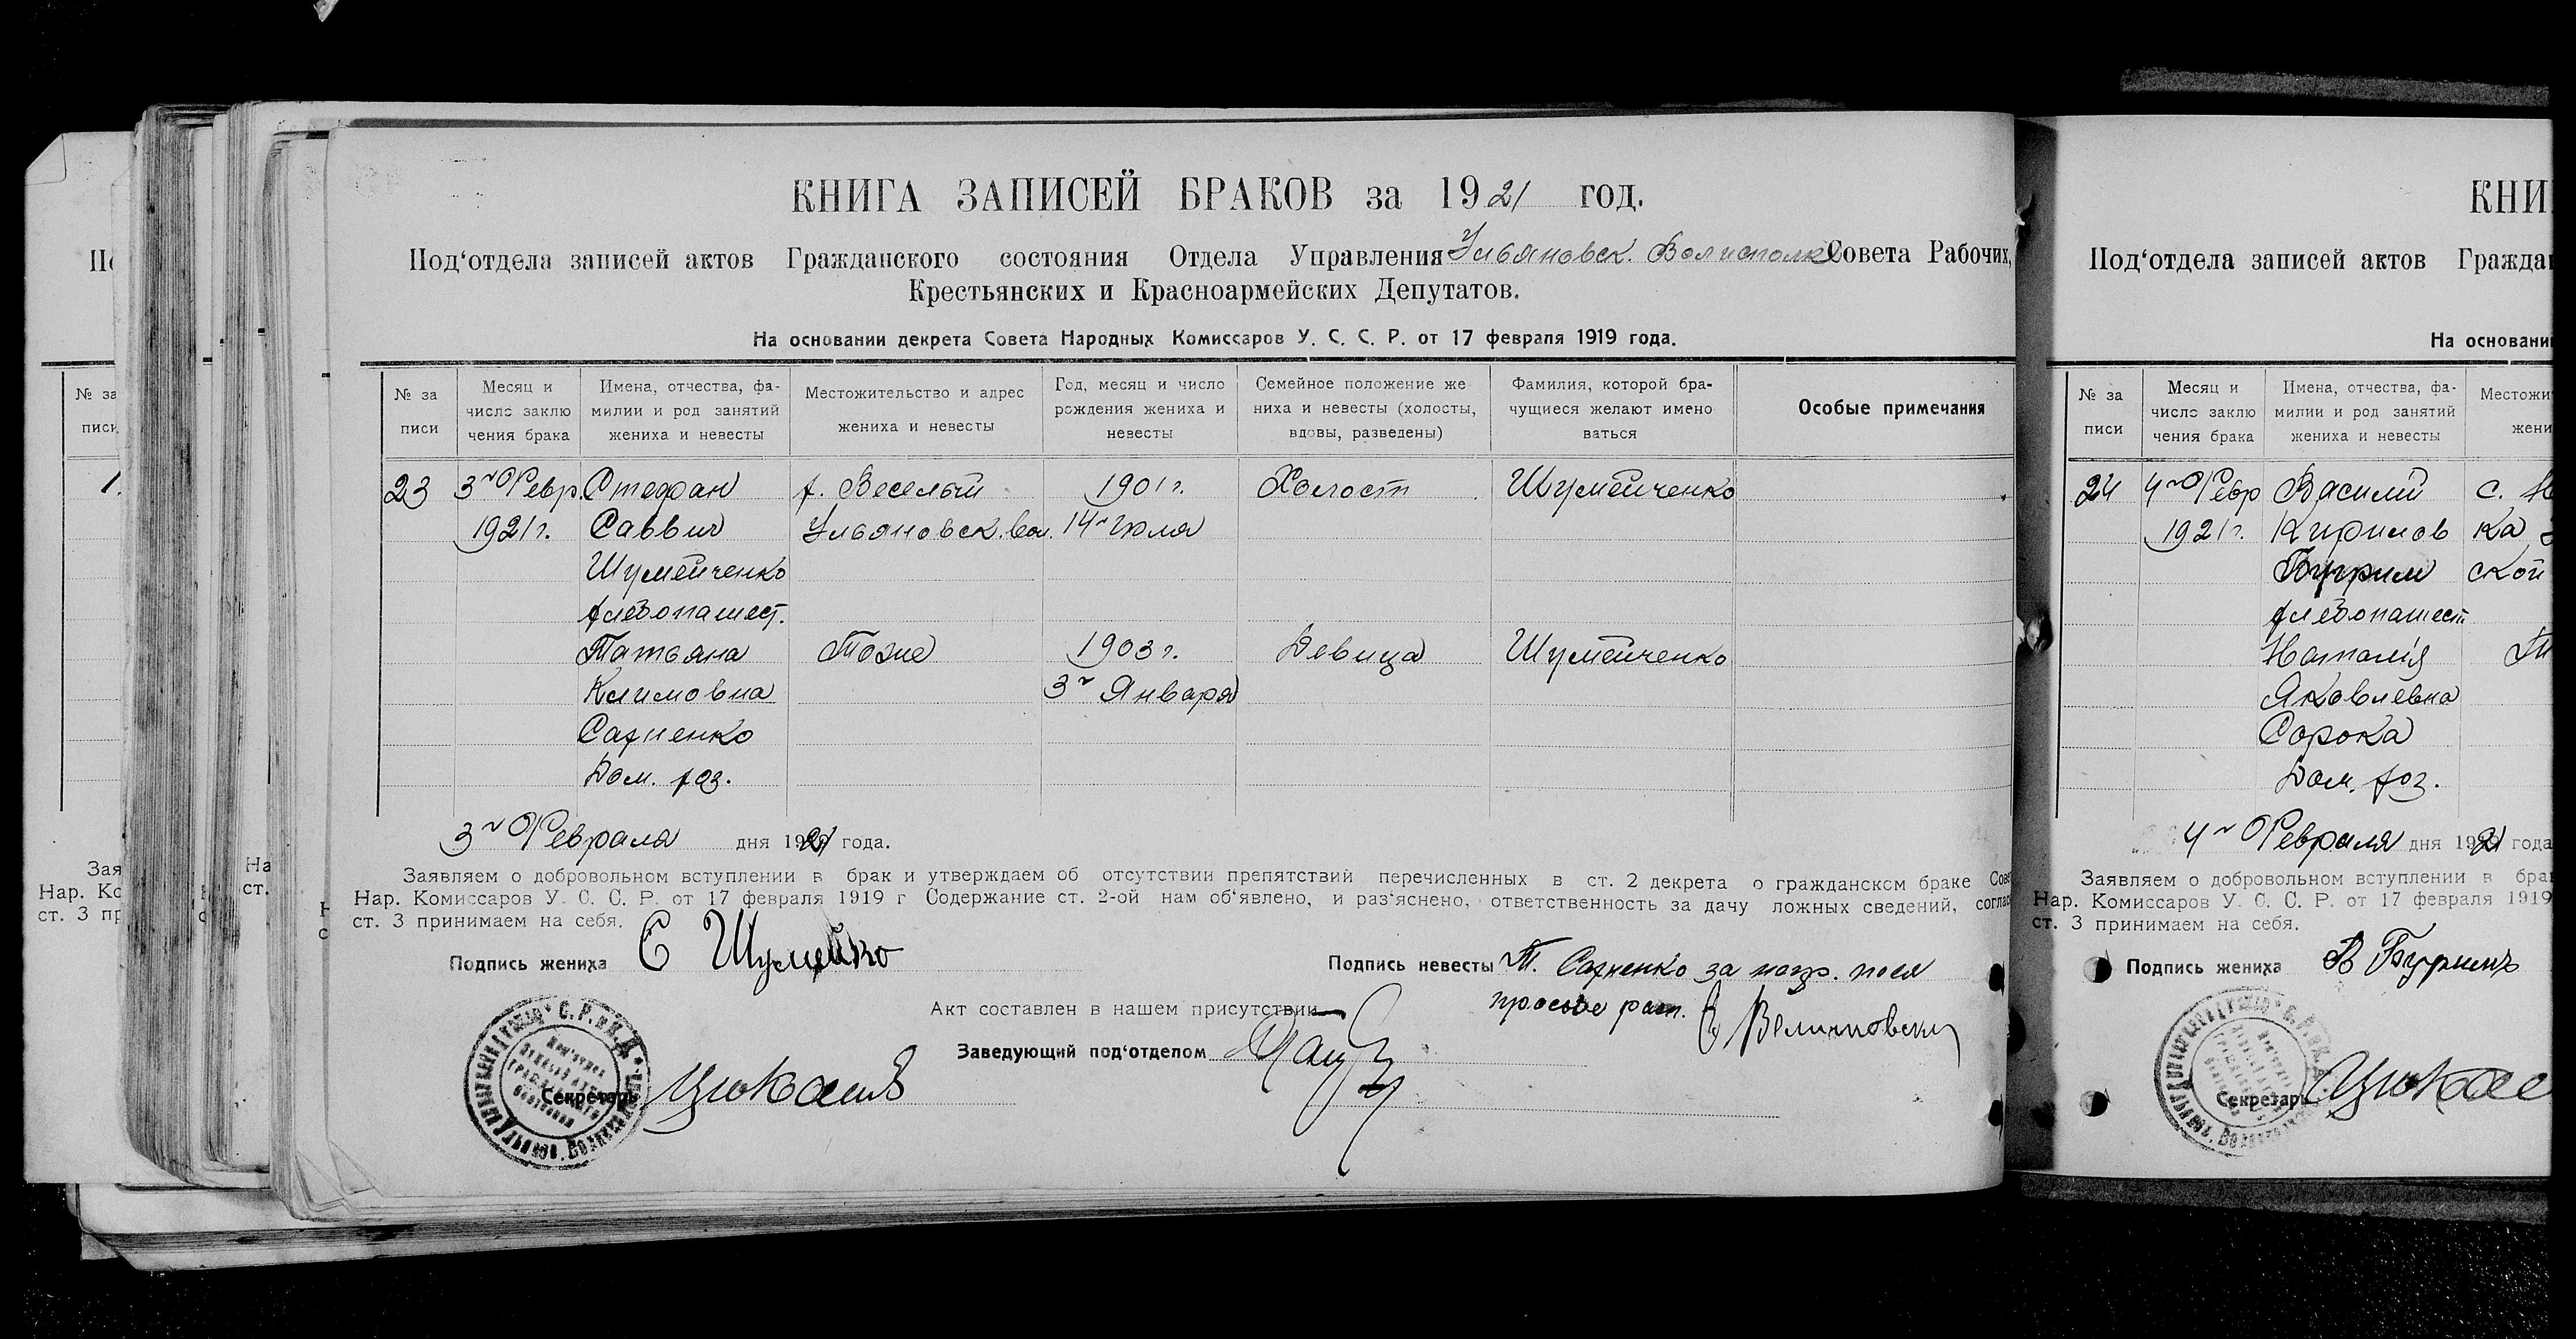 КНИГА ЗАПИСЕЙ БРАКОВ за 1921 год.
Под‘отдела записей актов Гражданского состояния Отдела Управления Ульяновск. Волисполк. Совета Рабочих,
Крестьянских и Красноармейских Депутатов.
На основании декрета Совета Народных Комиссаров У. С. С. Р. от 17 февраля 1919 года.
№ за
писи
Месяц и
число заклю
чения брака
Имена, отчества, фа-
милии и род занятий
жениха и невесты
Местожительство и адрес
жениха и невесты
Год, месяц и число
рождения жениха и
невесты
Семейное положение же
ниха и невесты (холосты,
вдовы, разведены)
Фамилия, которой бра-
чущиеся желают имено
ваться
Особые примечания
23 3го Февр. Стефан х. Веселый 1901 г. Холост Шумейченко
1921 г. Саввич Ульяновск. вол. 14го Июля
Шумейченко
хлебопашест.
Татьяна Тоже 1903 г. Девица Шумейченко
Климовна 3го Января
Сахненко
Дом. хоз.
3го Февраля дня 1921 года.
Заявляем о добровольном вступлении в брак и утверждаем об отсутствии препятствий перечисленных в ст. 2 декрета о гражданском браке Сове
Нар. Комиссаров У. С. С. Р. от 17 февраля 1919 г Содержание ст. 2-ой нам об‘явлено, и раз‘яснено, ответственность за дачу ложных сведений, соглас
ст. 3 принимаем на себя.
Подпись жениха С Шумейко
Подпись невесты Т. Сахненко за негр. по ея
просьбе расп.
Акт составлен в нашем присутствии
Заведующий под‘отделом
Секретарь
КНИ
Под‘отдела записей актов Гражда
На основани
№ за
писи
Месяц и
число заклю
чения брака
Имена, отчества, фа-
милии и род занятий
жениха и невесты
Местожи
жени
24 4го Февр Василий с.
1921 г. Кирилов ка
Буррим ской
хлебопашест
Наталія
Яковлевна
Сорока
Дом. хоз.
4го Февраля дня 1921 года
Заявляем о добровольном вступлении в бра
Нар. Комиссаров У. С. С. Р. от 17 февраля 1919
ст. 3 принимаем на себя.
Подпись жениха В Бурримъ
Секретарь